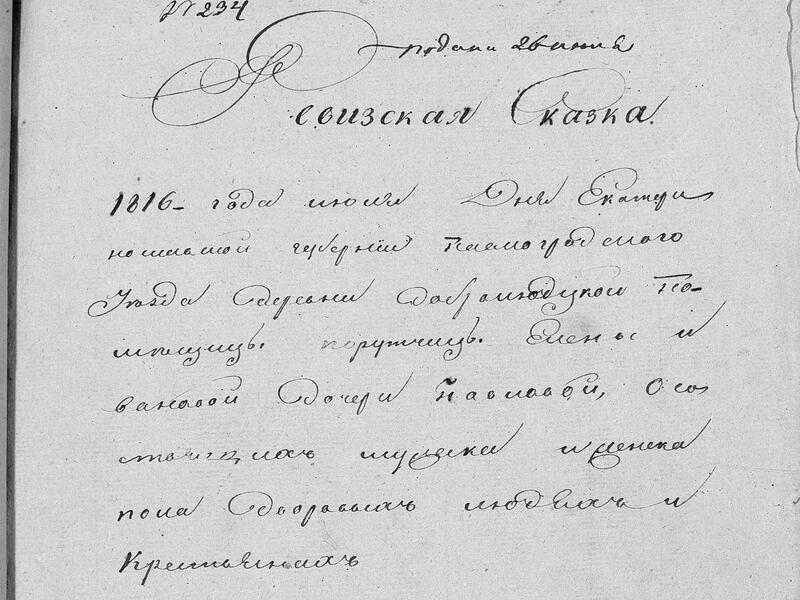 № 234
подана 26 июня
Ревизская Сказка.
1816 - года июля Дня Екатери
нославской губернии Павлоградского
Уезда Деревни Добролюдцкой По-
мещицъ. поручицъ. Елены И
вановой Дочери Павловой, О со
стоящихъ мужеска и женска
пола Дворовыхъ людѣхъ и
Крестьянахъ